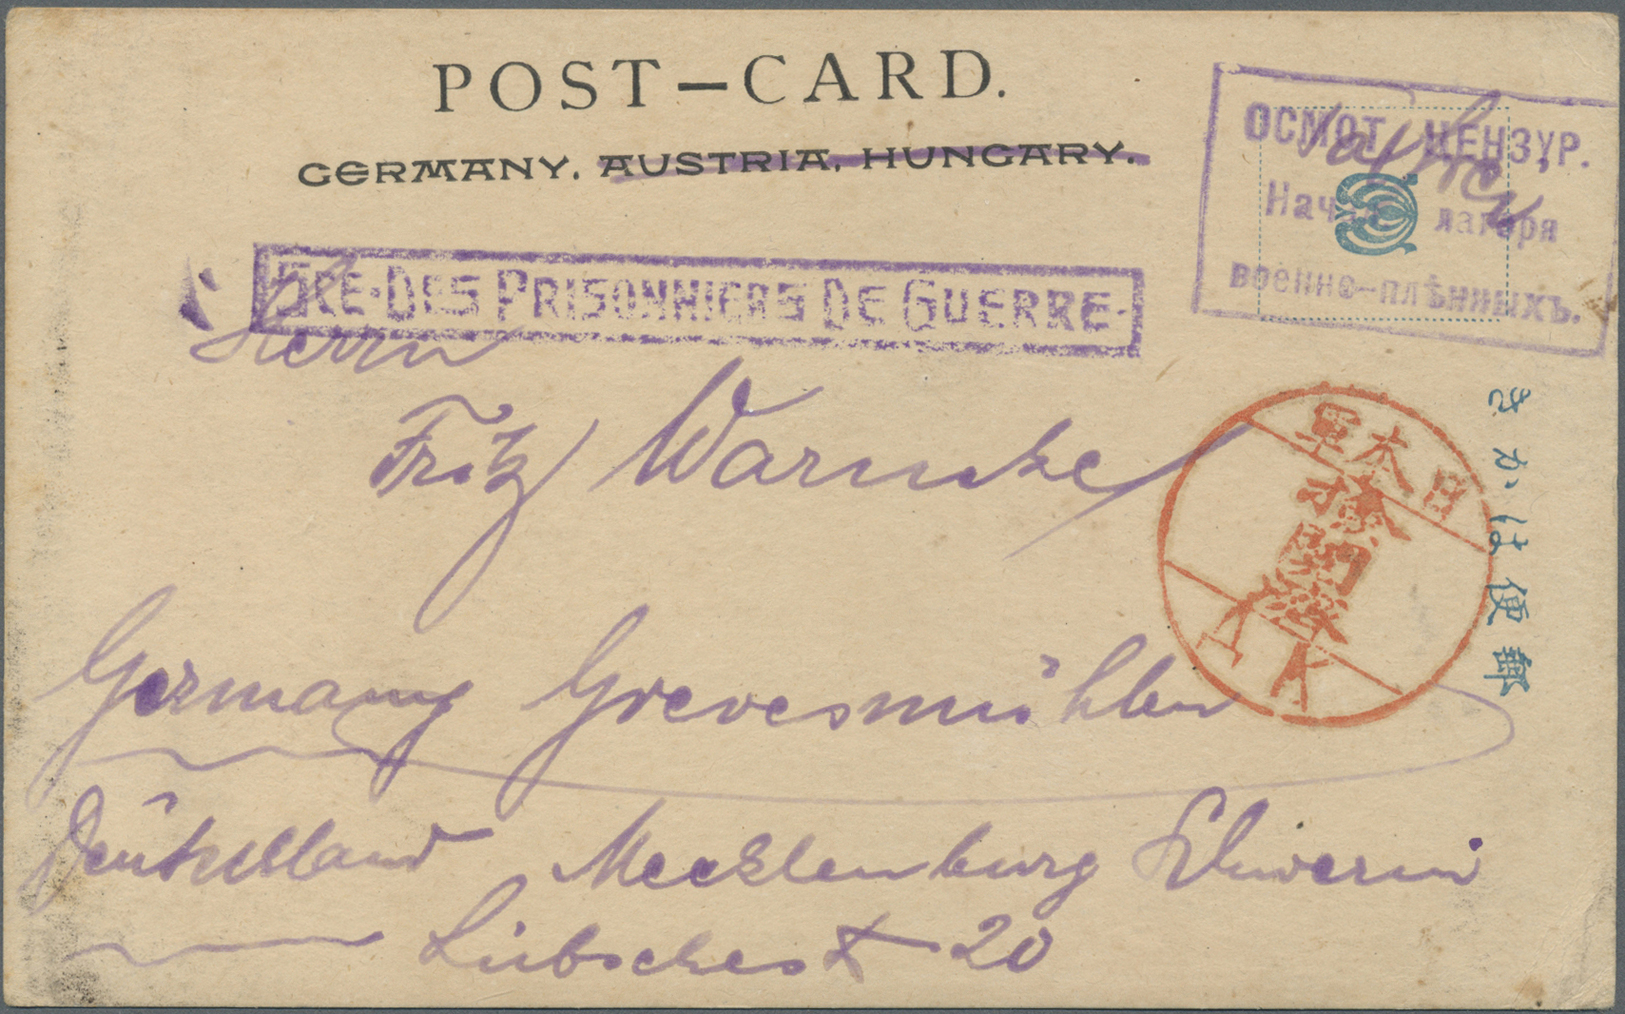 POST–CARD.
GERMANY. AUSTRIA, HUNGARY.
ОСМОТ. ЦЕНЗУР.
Нач. лагеря
военно-плѣнныхъ.
Sce-DES PRISONNIERS DE GUERRE.
Herrn
Fritz Warncke
きかは便郵
日本軍
検閲
Germany Grevesmühlen
Deutschland Mecklenburg Schwerin
Lübschest 20